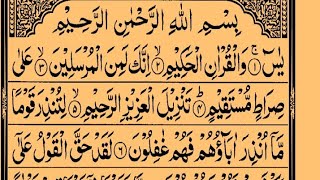 بِسْمِ اللّٰهِ الرَّحْمٰنِ الرَّحِيْمِ
يٰسٓ ۚ ﴿۱﴾ وَالْقُرْاٰنِ الْحَكِيْمِ ۙ﴿۲﴾ اِنَّكَ لَمِنَ الْمُرْسَلِيْنَ ۙ﴿۳﴾ عَلٰى
صِرَاطٍ مُّسْتَقِيْمٍ ؕ﴿۴﴾ تَنْزِيْلَ الْعَزِيْزِ الرَّحِيْمِ ۙ﴿۵﴾ لِتُنْذِرَ قَوْمًا
مَّاۤ اُنْذِرَ اٰبَآؤُهُمْ فَهُمْ غٰفِلُوْنَ ﴿۶﴾ لَقَدْ حَقَّ الْقَوْلُ عَلٰٓى